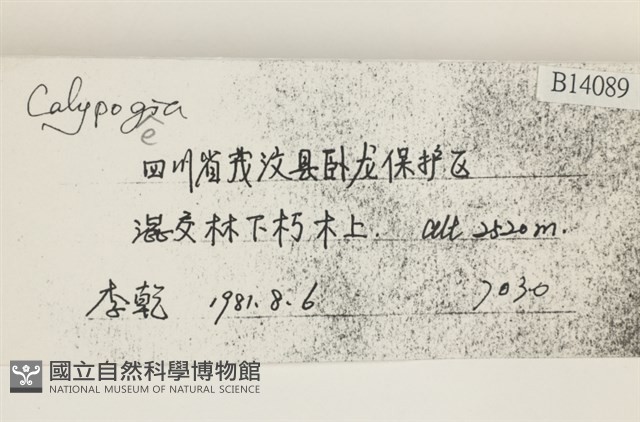 B14089
Calypogia
e
四川省茂汶县卧龙保护区
混交林下朽木上. alt 2520m.
李乾 1981.8.6 7030
國立自然科學博物館
NATIONAL MUSEUM OF NATURAL SCIENCE